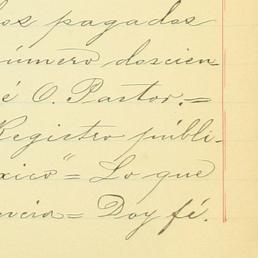 los pagados
número doscien-
é O. Pastor.=
Registro públi-
xico"= Lo que
encia= Doy fé.